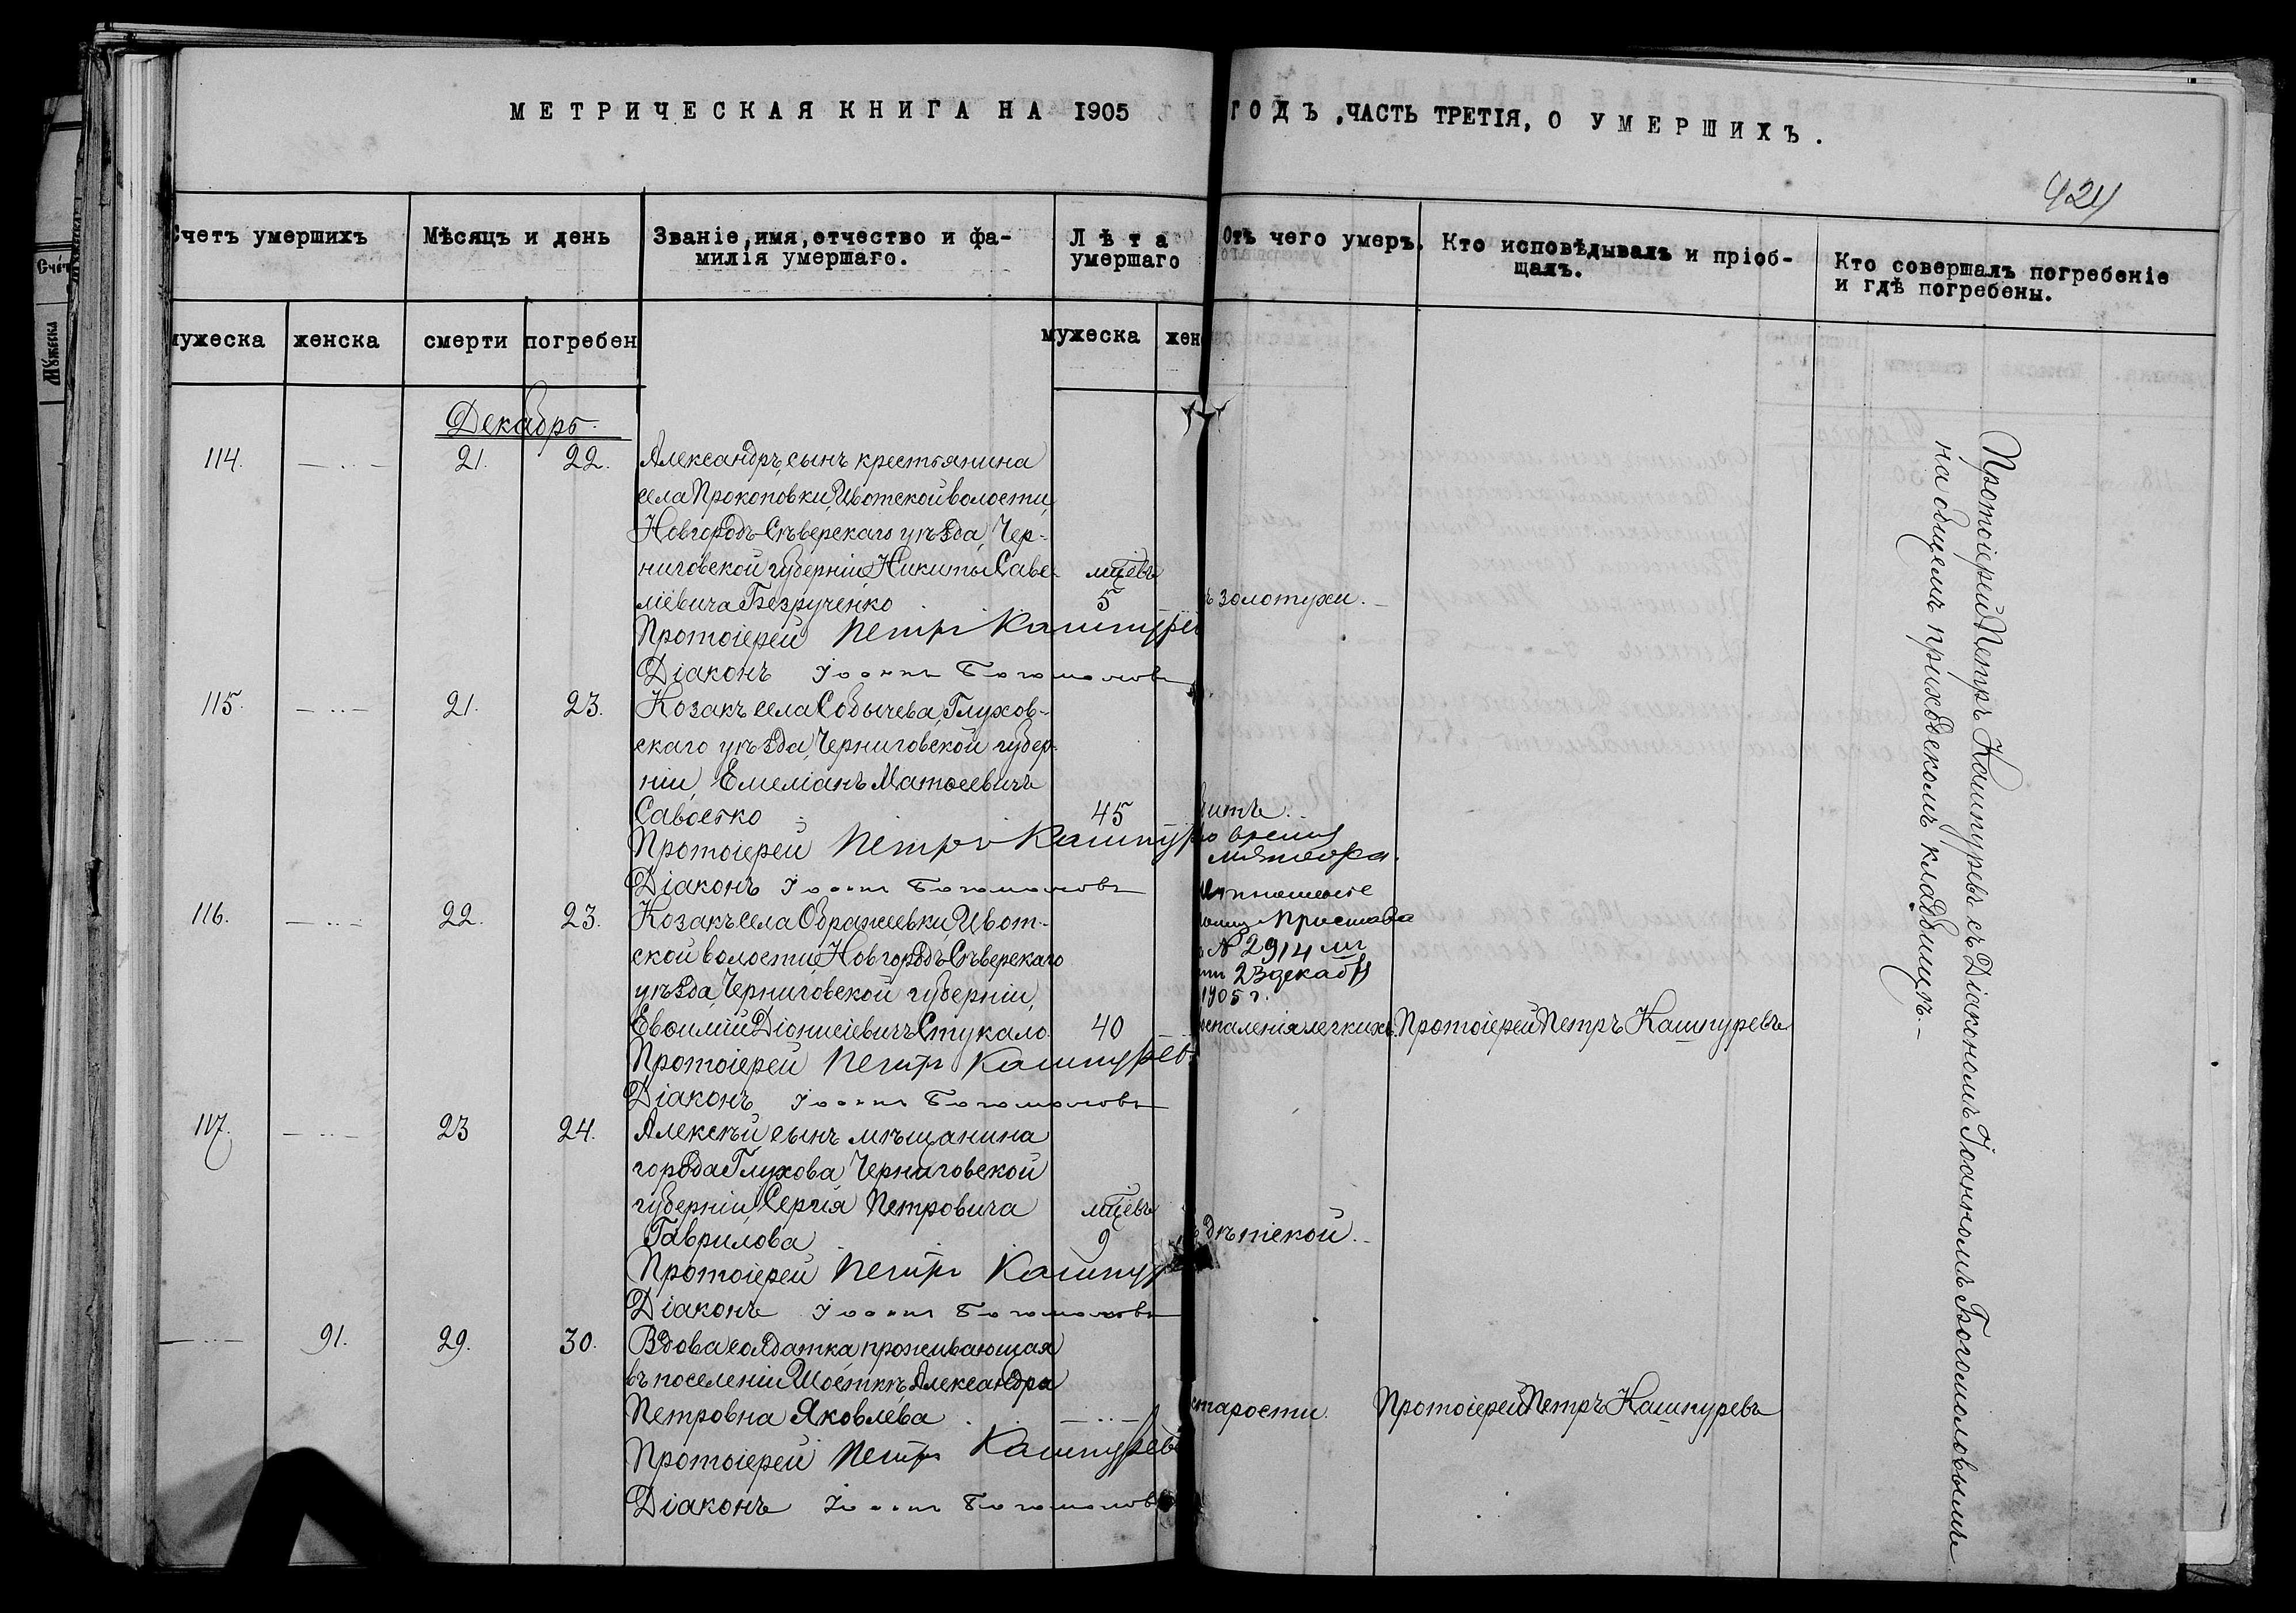 МЕТРИЧЕСКАЯ КНИГА НА 1905 ГОДЪ, ЧАСТЬ ТРЕТІЯ, О УМЕРШИХЪ.
424
Счетъ умершихъ
Мѣсяцъ и день
Званіе, имя, отчество и фа-
милія умершаго.
Лѣта
умершаго
Отъ чего умеръ.
Кто исповѣдывалъ и пріоб-
щалъ.
Кто совершалъ погребеніе
и гдѣ погребены.
мужеска женска смерти погребен мужеска жен
Декабрь
114. 21. 22. Александръ, сынъ крестьянина
села Прокоповки, Ивотской волости,
Новгородъ-Сѣверскаго уѣзда, Чер-
ниговской губерніи Никиты Саве- мцевъ
ліевича Безрученко 5 золотухи.
Протоіерей Петръ Кашпуревъ
Діаконъ Іоаннъ Богомоловъ
115. 21. 23. Козакъ села Собычева, Глухов-
скаго уѣзда, Черниговской губер-
ніи, Емеліанъ Матѳеевичъ
Савостко 45 битъ.
Протоіерей Петръ Кашпур во время
мятежа.
Діаконъ Іоаннъ Богомоловъ
отношеніе
Пристава
№ 2914
23 декабря
1905 г.
116. 22. 23. Козакъ села Ображеевки, Ивот-
ской волости, Новгородъ-Сѣверскаго
уѣзда, Черниговской губерніи,
Евѳимій Діонисіевичъ Стукало 40 воспаленія легкихъ. Протоіерей Петръ Кашпуревъ
Протоіерей Петръ Кашпуревъ
Діаконъ Іоаннъ Богомоловъ
117. 23 24. Алексѣй сынъ мѣщанина
города Глухова Черниговской
губерніи, Сергія Петровича мцевъ
Гаврилова 9 дѣтской.
Протоіерей Петръ Кашпур
Діаконъ Іоаннъ Богомоловъ
91. 29. 30. Вдова солдатка, проживающая
въ поселеніи Шосткѣ, Александра
Петровна Яковлева старости. Протоіерей Петръ Кашпуревъ
Протоіерей Петръ Кашпуревъ
Діаконъ Іоаннъ Богомоловъ
Протоіерей Петръ Кашпуревъ съ Діакономъ Іоанномъ Богомоловымъ
на общемъ приходскомъ кладбищѣ.